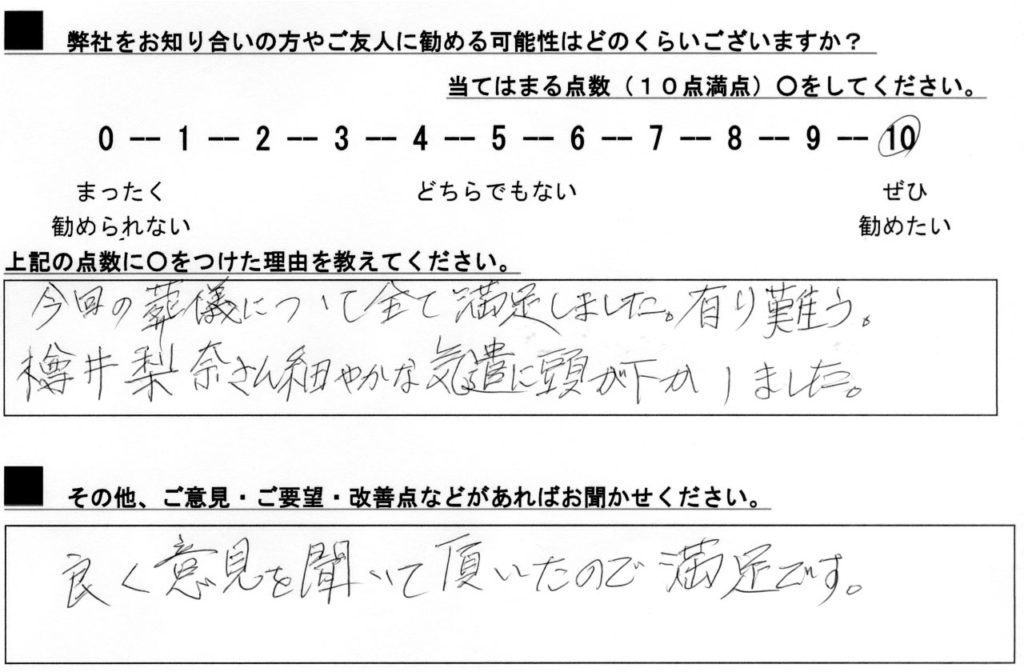 ■ 弊社をお知り合いの方やご友人に勧める可能性はどのくらいございますか?
当てはまる点数(10点満点)〇をしてください。
0 -- 1 -- 2 -- 3 -- 4 -- 5 -- 6 -- 7 -- 8 -- 9 -- 10
まったく どちらでもない ぜひ
勧められない 勧めたい
上記の点数に〇をつけた理由を教えてください。
今回の葬儀について全て満足しました。有り難う。
樽井梨奈さん細やかな気遣に頭が下がりました。
■ その他、ご意見・ご要望・改善点などがあればお聞かせください。
良く意見を聞いて頂いたので満足です。